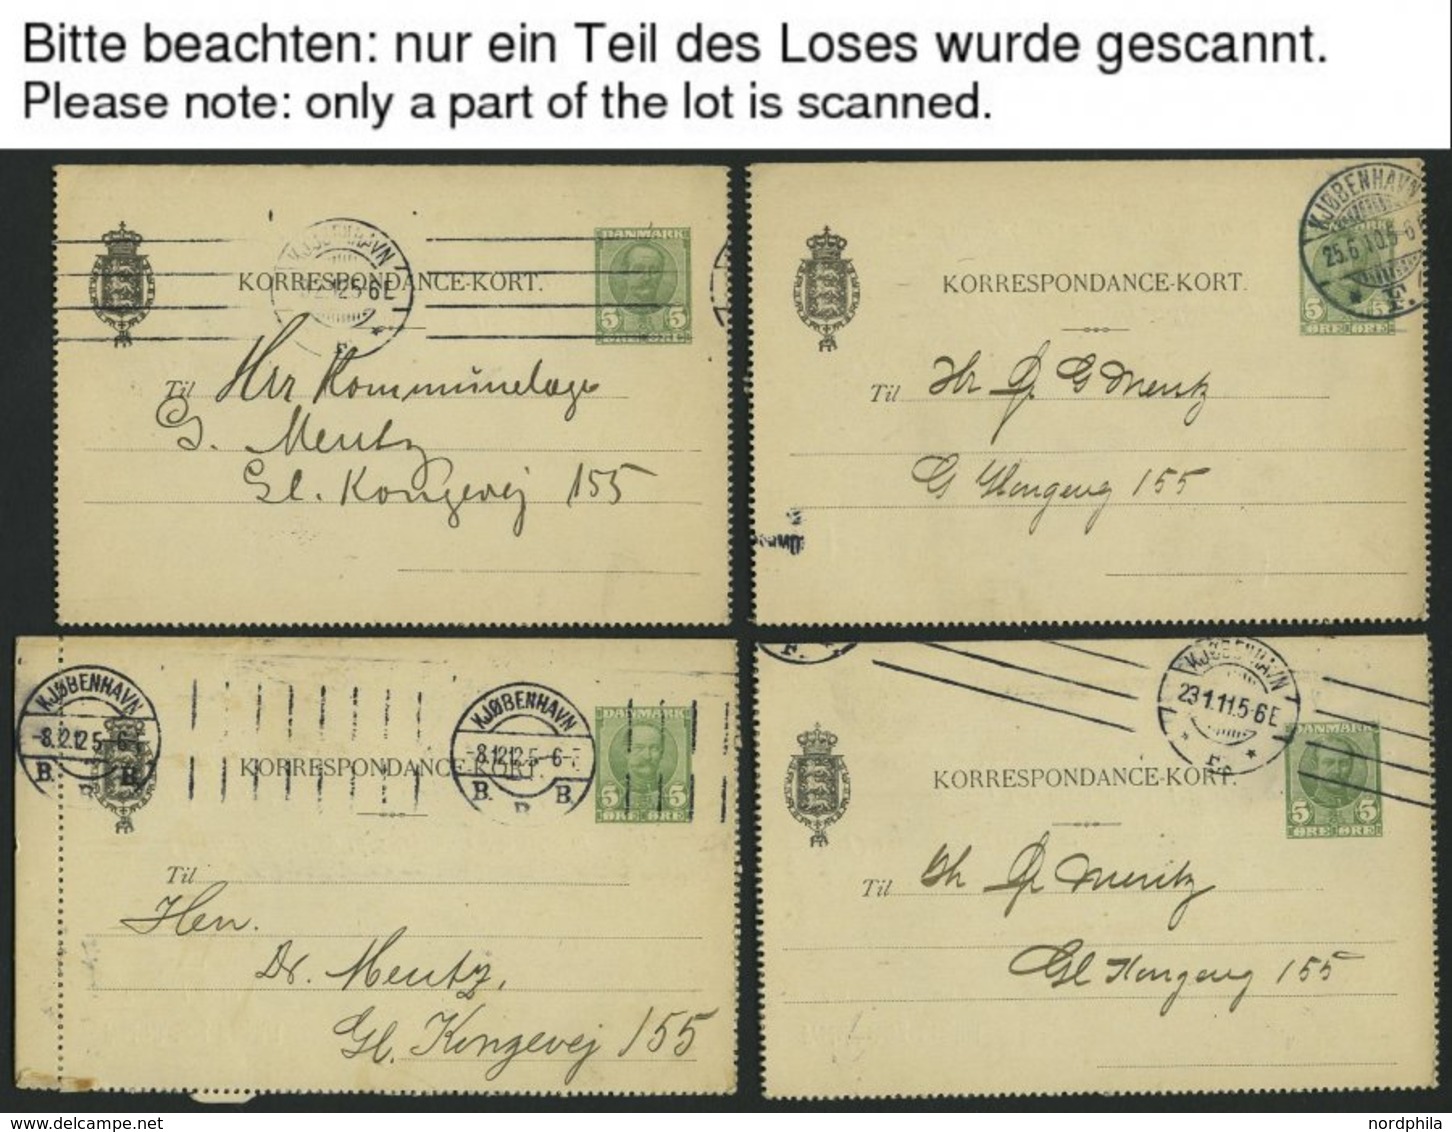 Bitte beachten: nur ein Teil des Loses wurde gescannt.
Please note: only a part of the lot is scanned.
KJØBENHAVN
5-6E
F.
KORRESPONDANCE-KORT.
DANMARK
5 5
ØRE ØRE
Til Hrr Kommunelæge
G. Mentz
Gl. Kongevej 155
KJØBENHAVN
25.6.10.5-6E
F.
KORRESPONDANCE-KORT.
5 5
ØRE ØRE
Til Hr Dr G Mentz
Gl Kongevej 155
KJØBENHAVN
-8.2.12 5-6-
B. B. B
KJØBENHAVN
-8.12.12 5-6-
B. B B.
KORRESPONDANCE-KORT.
DANMARK
5 5
ØRE ØRE
Til
Herr.
Dr. Mentz,
Gl. Kongevej 155
F.
KJØBENHAVN
23.1.11.5-6E
F.
KORRESPONDANCE-KORT.
DANMARK
5 5
ØRE ØRE
Til Hr Dr Mentz
Gl Kongevej 155
www.delcampe.net
nordphila